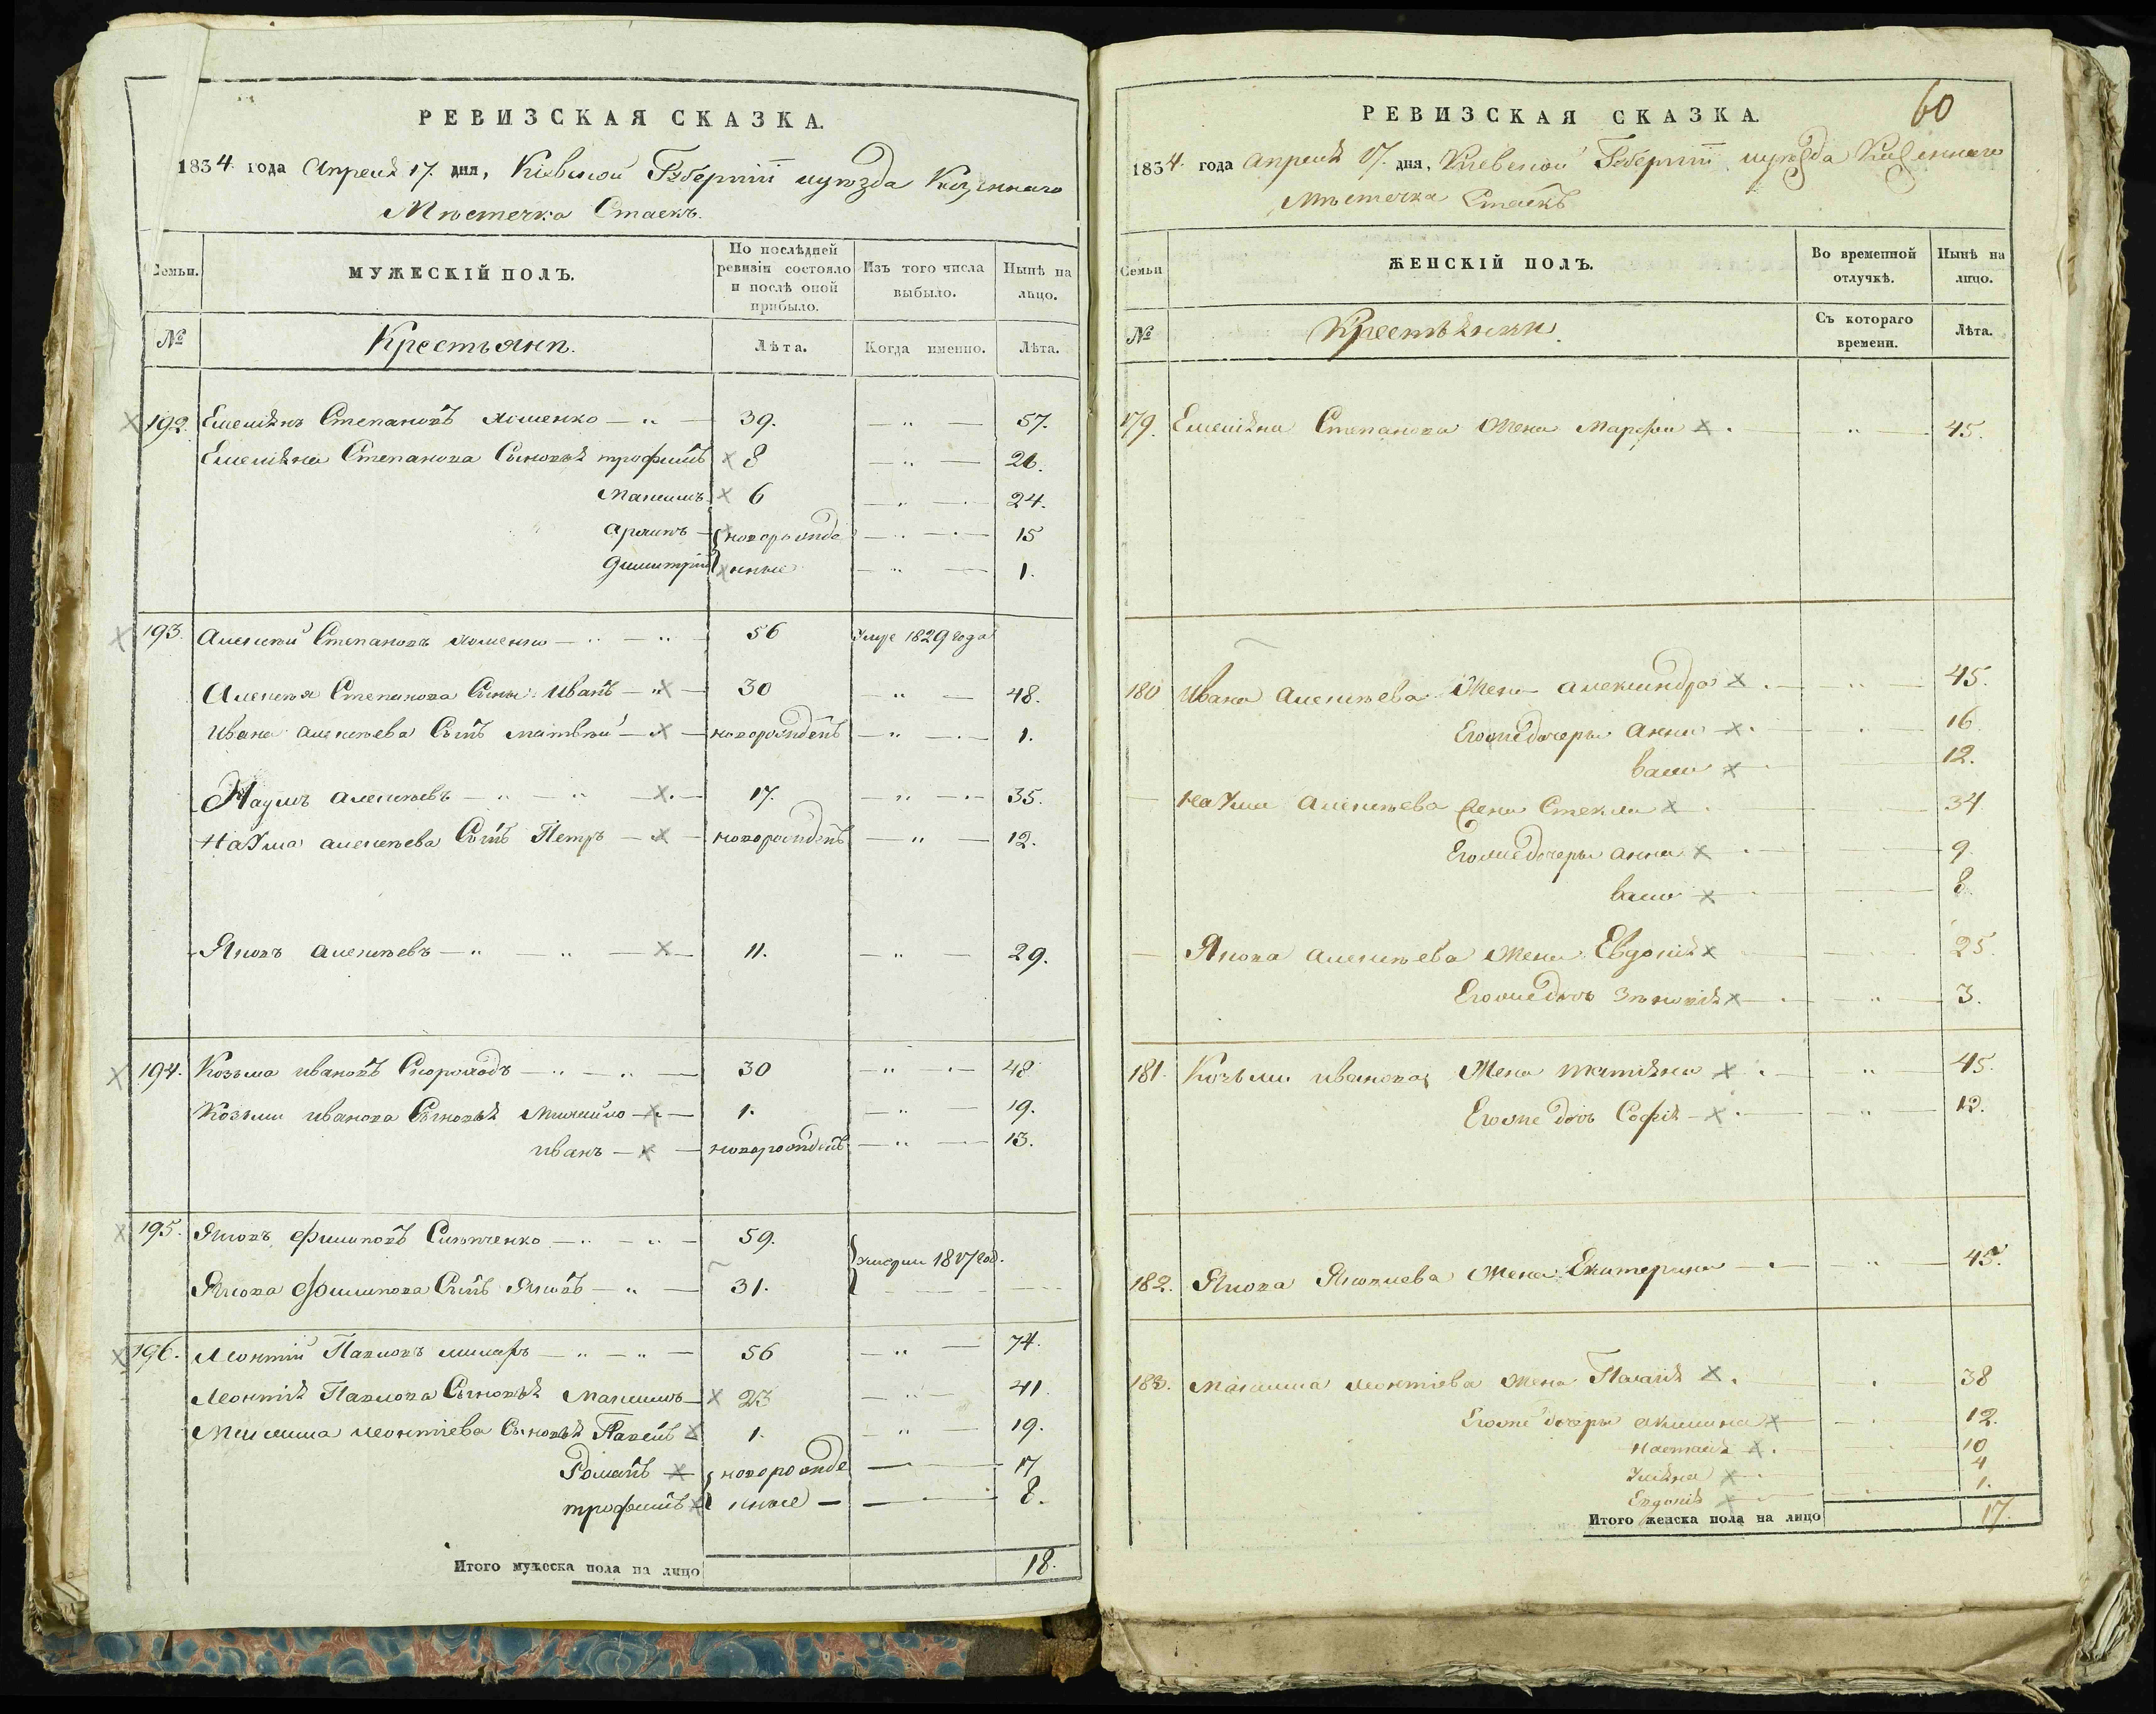 РЕВИЗСКАЯ СКАЗКА.
1834 года Апреля 17. дня, Кіевской Губерніи и уѣзда Казеннаго
Мѣстечка Стаекъ.
Семьи.
МУЖЕСКІЙ ПОЛЪ.
По послѣдней ревизіи состояло и послѣ оной прибыло.
Изъ того числа выбыло.
Нынѣ на лицо.
№
Крестьяни.
Лѣта.
Когда именно.
Лѣта.
192. Емелѣянъ Степановъ Хоменко 39. 57.
Емелѣяна Степанова Сыновья трофимъ 8 26.
Максимъ 6 24.
новорожде 15
Димитрій нные 1.
193. Алексѣй Степановъ Хоменко 56 Умре 1829 года
Алексѣя Степанова Сынъ Иванъ 30 48.
Ивана Алексѣева Сынъ Матвѣй новорожденъ 1.
Наумъ Алексѣевъ 17. 35.
Наума Алексѣева Сынъ Петръ новорожденъ 12.
Яковъ Алексѣевъ 11. 29.
194. Козьма Ивановъ Скороходъ 30 48
Козьми Иванова Сыновья Михайло 1. 19.
Иванъ новорожденъ 13.
195. Яковъ Филиповъ 59.
Умерли 1817 год.
Якова Филипова Сынъ Яковъ 31.
196. Леонтій Павловъ 56 74.
Леонтія Павлова Сыновья Максимъ 23 41.
Максима Леонтіева Сыновья Павелъ 1. 19.
Романъ новорожде 17
трофимъ нные 8.
Итого мужеска пола на лицо 18.
60
РЕВИЗСКАЯ СКАЗКА.
1834 года Апреля 17. дня, Кіевской Губерніи и уѣзда Казеннаго
Мѣстечка Стаекъ
Семьи
ЖЕНСКІЙ ПОЛЪ.
Во временной отлучкѣ.
Нынѣ на лицо.
№
Крестьянки.
Съ котораго времени.
Лѣта.
179. Емеліяна Степанова Жена Марфа 45.
180 Ивана Алексѣева Жена Александра 45.
Егоже дочери Анна 16
12.
Наума Алексѣева Жена Стекла 34
Егоже дочери Анна 9
8.
Якова Алексѣева Жена Евдокія 25.
Егоже дочь Зѣновія 3.
181. Козьми Иванова Жена Татіяна 45.
Егоже дочь Софія 12.
182. Якова Яковлева Жена Екатерина 45.
183. Максима Леонтіева Жена Палагія 38
Егоже дочери Акилина 12.
Настасія 10
Уліяна 4
Евдокія 1.
Итого женска пола на лицо 17.